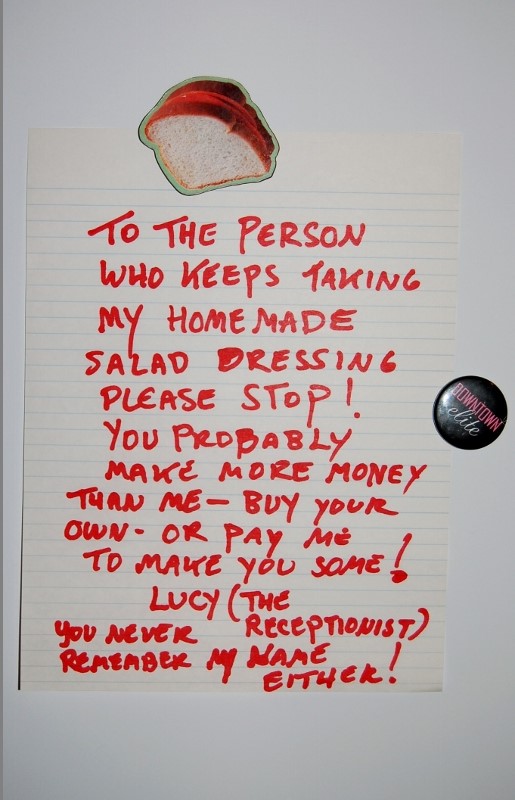 TO THE PERSON
WHO KEEPS TAKING
MY HOMEMADE
SALAD DRESSING
PLEASE STOP!
YOU PROBABLY
MAKE MORE MONEY
THAN ME – BUY YOUR
OWN - OR PAY ME
TO MAKE YOU SOME!
LUCY (THE
RECEPTIONIST)
YOU NEVER
REMEMBER MY NAME
EITHER!
DOWNTOWN
elite